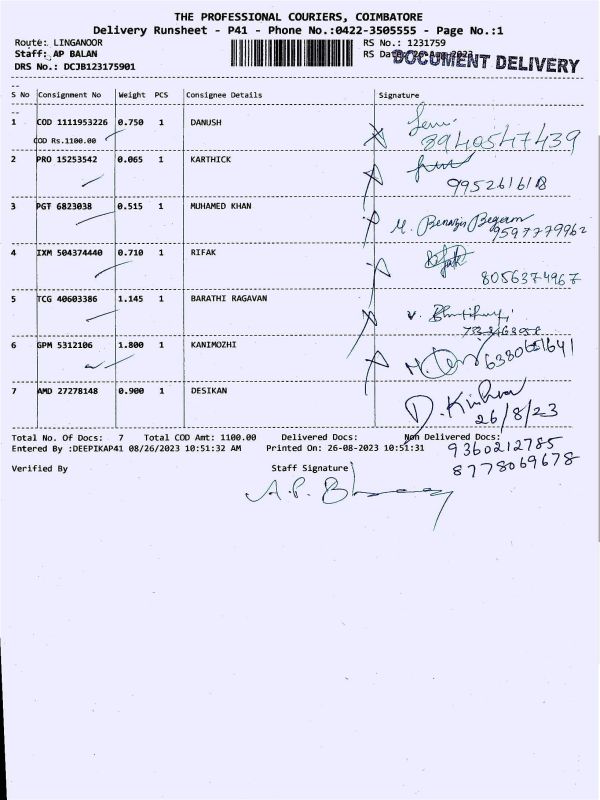 THE PROFESSIONAL COURIERS, COIMBATORE
Delivery Runsheet - P41 - Phone No.:0422-3505555 - Page No.:1
Route: LINGANOOR RS No.: 1231759
Staff: AP BALAN RS Date: 26-Aug-2023
DOCUMENT DELIVERY
DRS No.: DCJB123175901
S No Consignment No Weight PCS Consignee Details Signature
1 COD 1111953226 0.750 1 DANUSH
COD Rs.1100.00 8940547439
2 PRO 15253542 0.065 1 KARTHICK
9952616118
3 PGT 6823038 0.515 1 MUHAMED KHAN
M. Benazir Begam
9597779962
4 IXM 504374440 0.710 1 RIFAK
8056374967
5 TCG 40603386 1.145 1 BARATHI RAGAVAN
6 GPM 5312106 1.800 1 KANIMOZHI
6380651641
7 AMD 27278148 0.900 1 DESIKAN
26/8/23
Total No. Of Docs: 7 Total COD Amt: 1100.00 Delivered Docs: Non Delivered Docs:
Entered By :DEEPIKAP41 08/26/2023 10:51:32 AM Printed On: 26-08-2023 10:51:31
9360212785
8778069678
Verified By Staff Signature